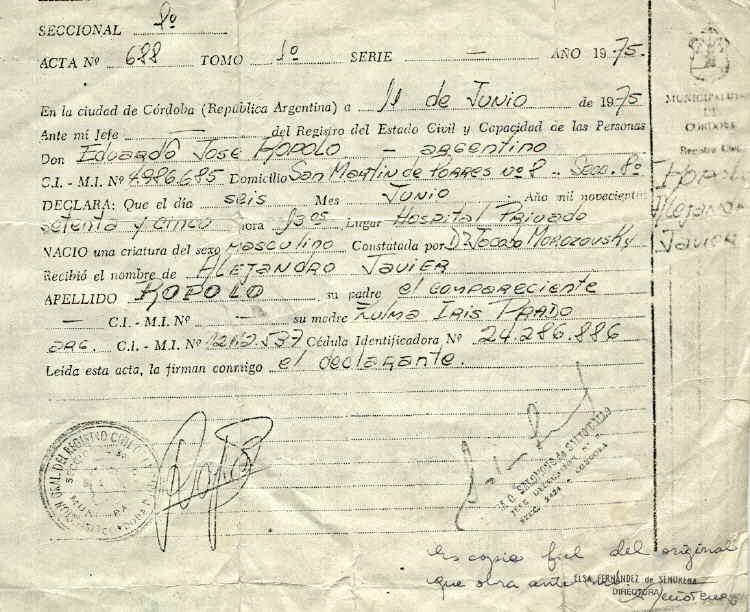 SECCIONAL 8º
ACTA Nº 688 TOMO 1º SERIE — AÑO 1975.
En la ciudad de Córdoba (República Argentina) a 11 de Junio de 1975
Ante mi Jefe — del Registro del Estado Civil y Capacidad de las Personas
Don Eduardo Jose Kopolo - argentino
C.I. - M.I. Nº Domicilio San Martin de Porres nº 8 - Secc. 8º
DECLARA: Que el día seis Mes Junio Año mil novecientos
setenta y cinco hora 1305 Lugar Hospital Privado
NACIO una criatura del sexo masculino Constatada por Dr Jacobo Morozovsky
Recibió el nombre de ALEJANDRO JAVIER
APELLIDO KOPOLO su padre el compareciente
— C.I. - M.I. Nº — su madre Nulma Iris Prado
arg. C.I. - M.I. Nº Cédula Identificadora Nº 24.286.886
Leída esta acta, la firman conmigo el declarante.
MUNICIPALIDAD
DE
CORDOBA
Registro Civil
Kopolo
Alejandro
Javier
es copia fiel del original
que obra ante
ELSA FERNÁNDEZ de
DIRECTORA